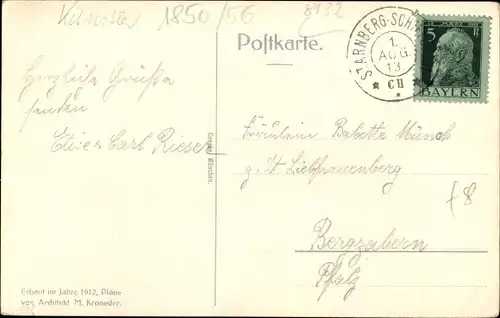 Künstler 1850/56 8132
Postkarte.
STARNBERG-SCH
1.
AUG.
13
* C II *
5 Pf
BAYERN
Herzliche Grüße
senden
Carl Rieser
Fräulein Babette Münch
z. Zt. Liebfrauenberg
f8
Bergzabern
Pfalz
München.
Erbaut im Jahre 1912, Pläne
von Architekt M. Kroneder.